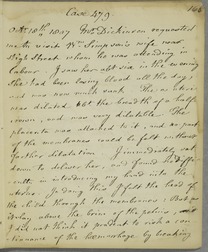 Case 479.
Oct. 10th. 1827 Mrs. Dickinson requested
wife near
High Street whom she was attending in
Labour. I saw her at six in the evening
She had been losing blood all the day,
and was now much weak. The os uteri
was dilated to the breadth of a half
crown, and was very dilatable. The
placenta was attached to it, and a part
of the membranes could be felt without
further dilatation. I immediately sat
down to deliver her, and found no diffi-
culty introducing my hand into the
uterus. In doing this I felt the head of
the child through the membranes; But as
it lay above the brim of the pelvis
I did not think it prudent to risk a con-
tinuance of the hemorrhage by breaking